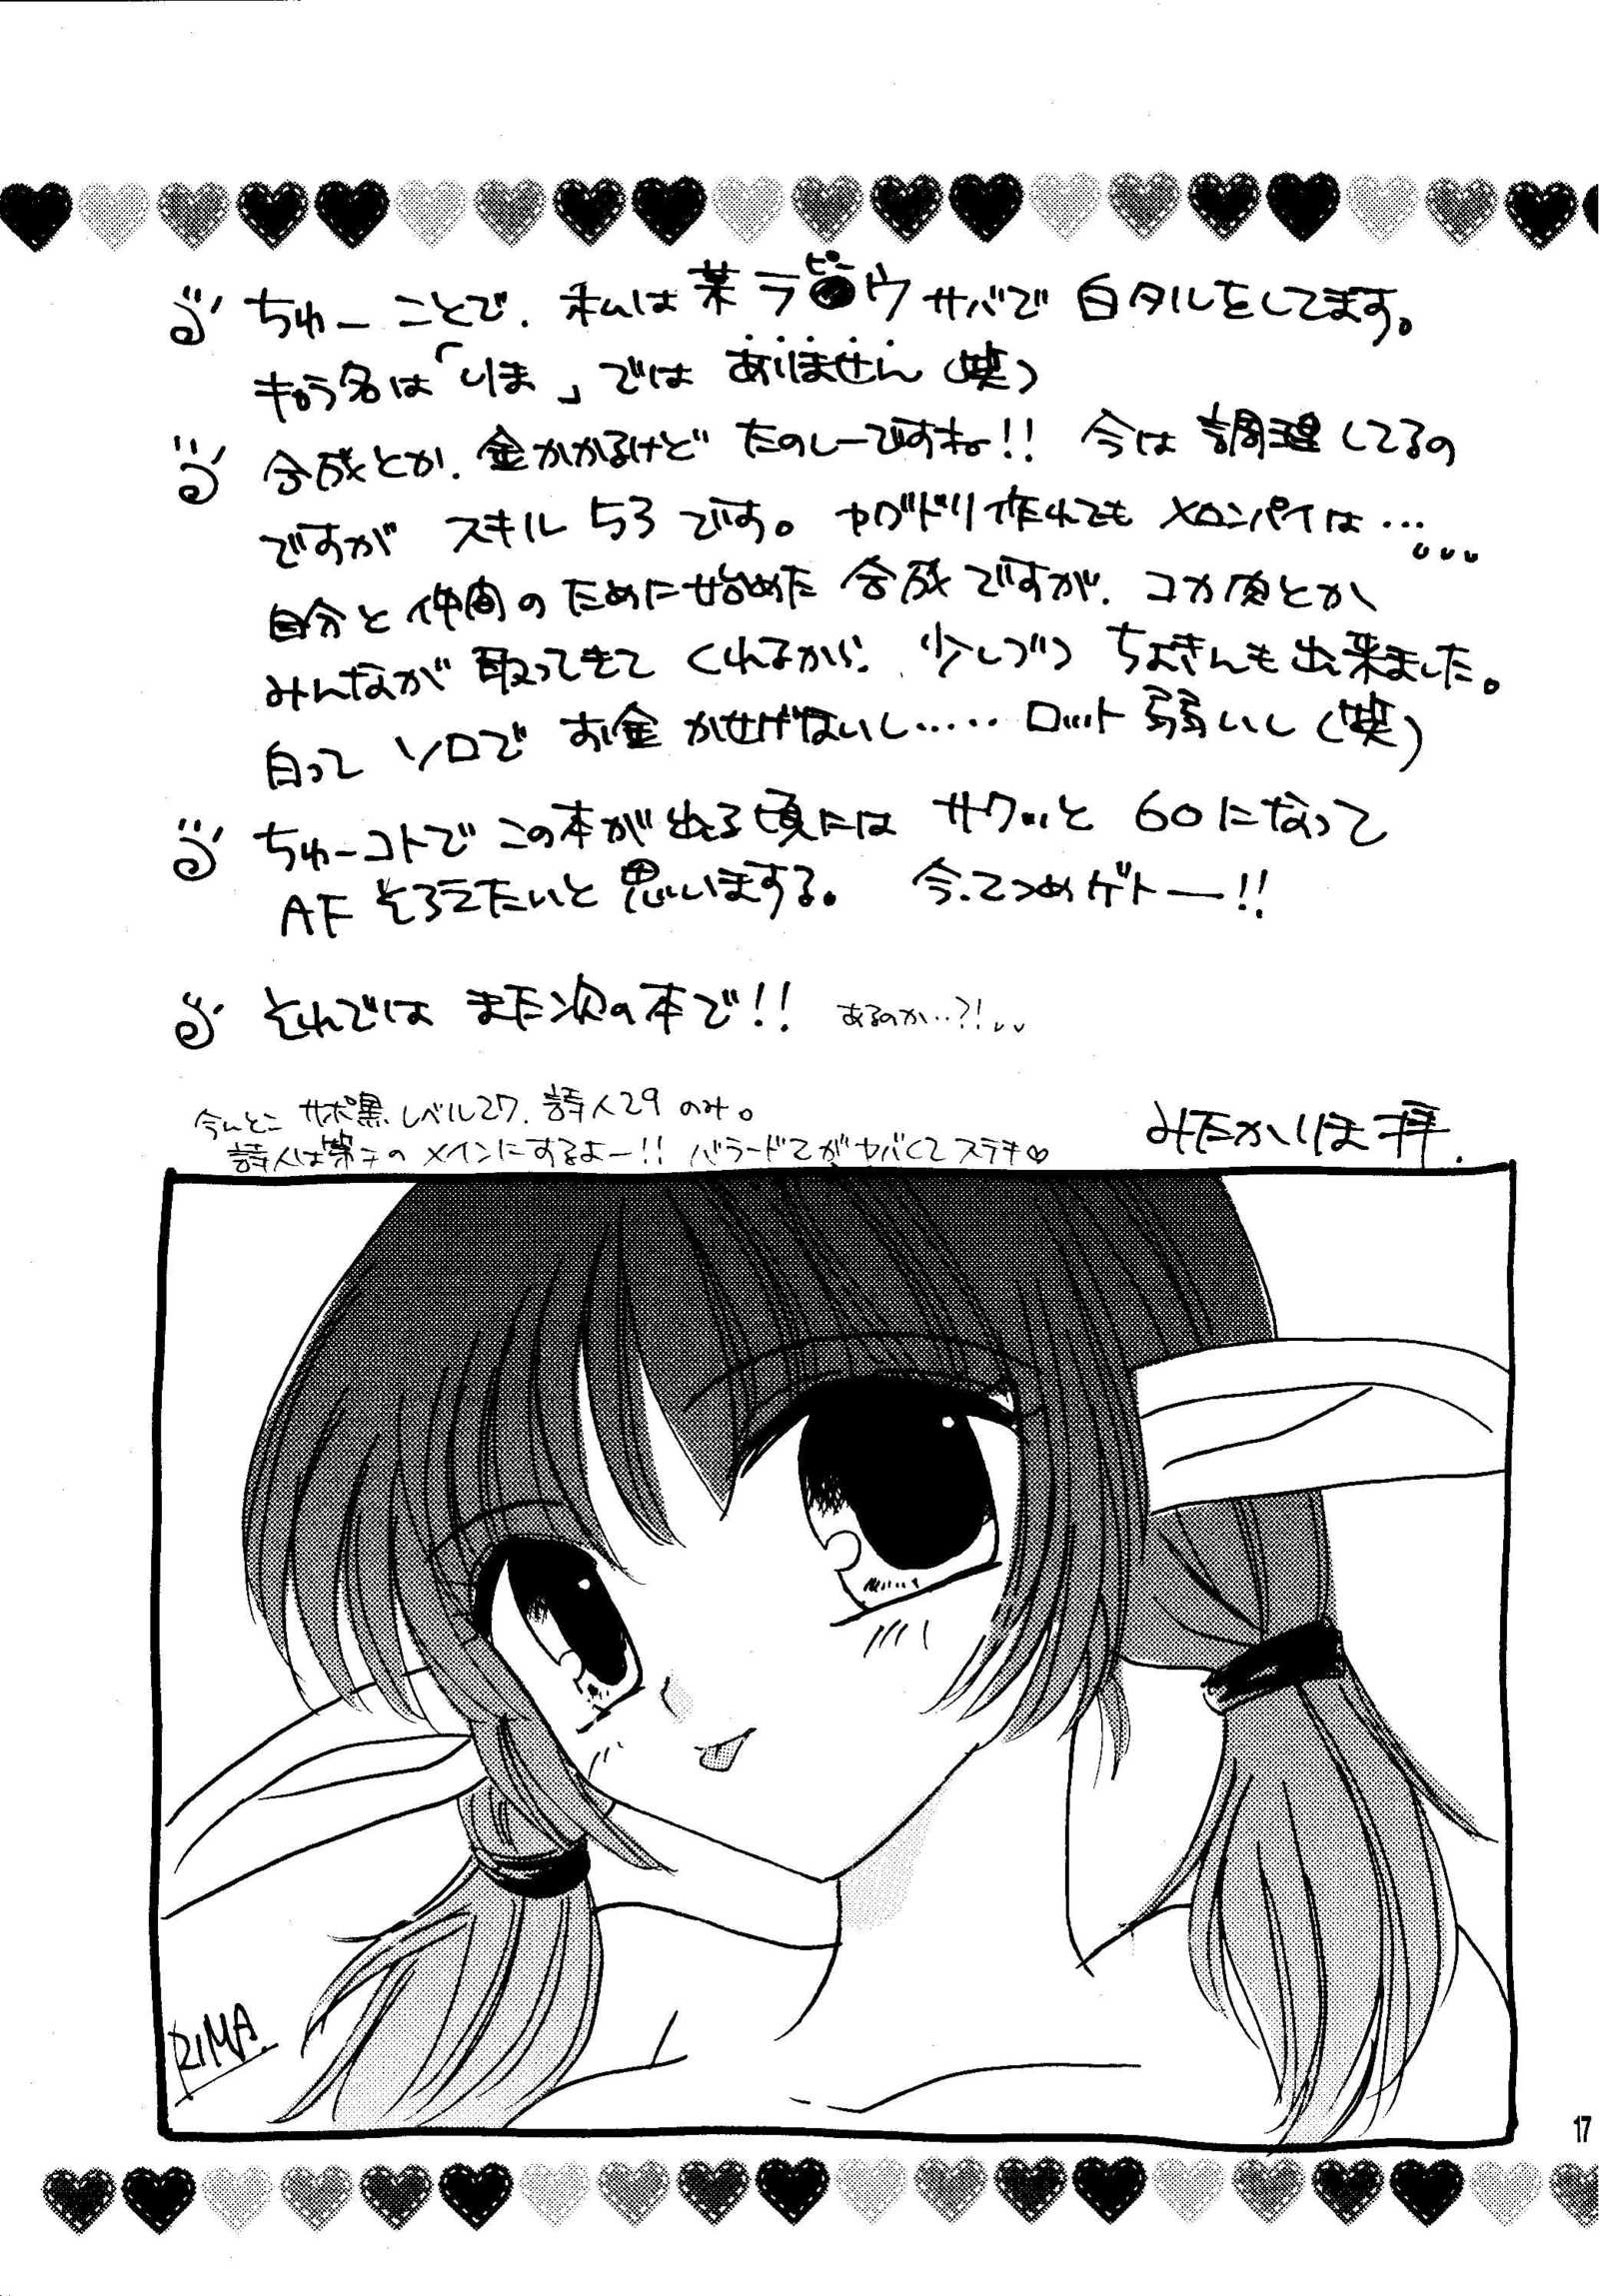 ちゅーことで、私は某ラ●ウサバで白タルをしてます。
ピー
キャラ名は「りま」ではありません（笑）
合成とか、金かかるけどたのしーですね!! 今は調理してるの
ですがスキル53です。ヤグドリ作れてもメロンパイは…
自分と仲間のために始めた合成ですが、コカ肉とか
みんなが取ってきてくれるから、少しづつちょきんも出来ました。
白ってソロでお金かせげないし…‥ロット弱いし（笑）
ちゅーコトでこの本が出る頃にはサクッと60になって
AFそろえたいと思いまする。 今、てつめゲトー!!
それではまた次の本で!! あるのか‥?!
今んとこサポ黒レベル27、詩人29のみ。
詩人は第二のメインにするよー!! バラード2がヤバくてステキ♡
みたかりま拝.
RIMA.
17